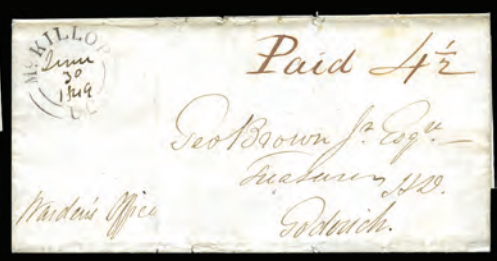 McKILLOP
June
30
1849
U.C
Paid 4½
Geo Brown Jr. Esqre
Treasurer H.D.
Goderich.
Warden's Office